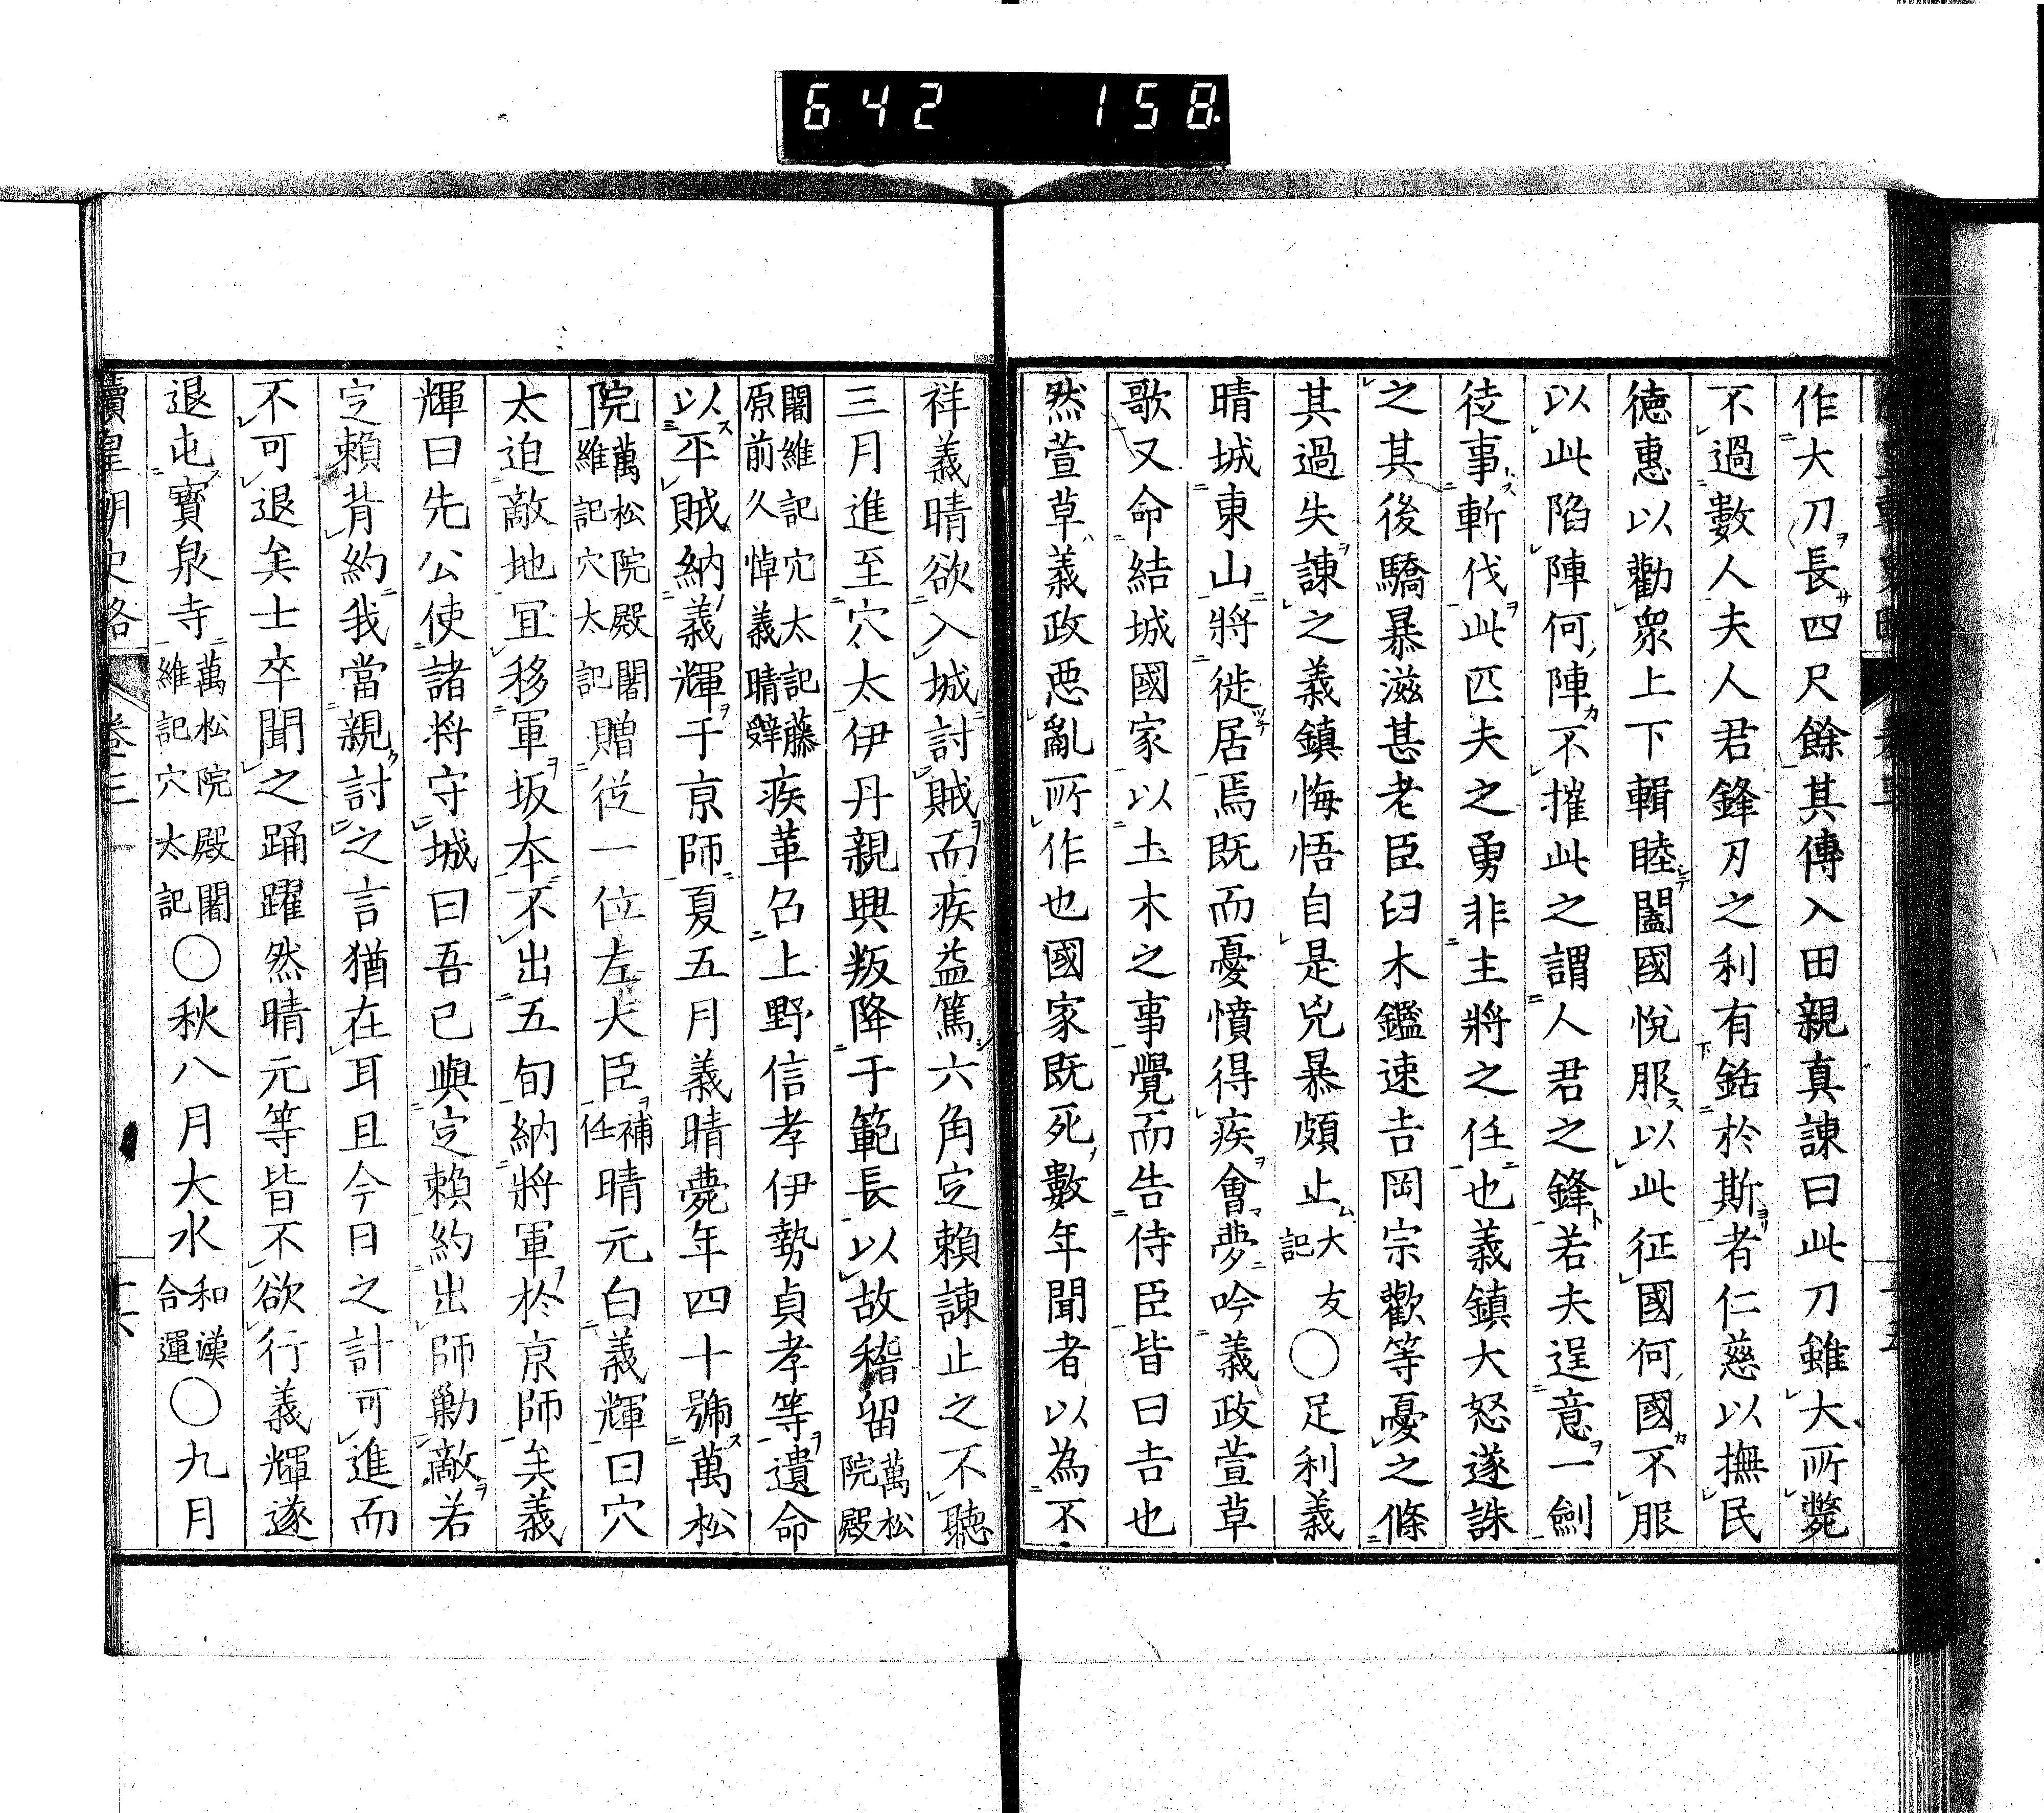 642 158
作大刀長四尺餘其傳入田親真諫曰此刀雖大所斃
不過數人夫人君鋒刃之利有銛於斯者仁慈以撫民
徳惠以勸衆上下輯睦闔國悅服以此征國何國不服
以此陷陣何陣不摧此之謂人君之鋒若夫逞意一劍
徒事斬伐此匹夫之勇非主將之任也義鎮大怒遂誅
之其後驕暴滋甚老臣臼木鑑速吉岡宗歡等憂之條
其過失諫之義鎮悔悟自是兇暴頗止大友記〇足利義
晴城東山將徙居焉既而憂憤得疾會夢吟義政萱草
歌又命結城國家以土木之事覺而告侍臣皆曰吉也
然萱草義政惡亂所作也國家既死數年聞者以為不
祥義晴欲入城討賊而疾益篤六角定賴諫止之不聽
三月進至穴太伊丹親興叛降于範長以故稽留萬松院殿
闍維記穴太記藤原前久悼義晴辭疾革召上野信孝伊勢貞孝等遺命
以平賊納義輝于京師夏五月義晴薨年四十號萬松
院萬松院殿闍維記穴太記贈從一位左大臣補任晴元白義輝曰穴
太迫敵地宜移軍坂本不出五旬納將軍於京師矣義
輝曰先公使諸將守城曰吾已與定賴約出師勦敵若
定賴背約我當親討之言猶在耳且今日之計可進而
不可退矣士卒聞之踊躍然晴元等皆不欲行義輝遂
退屯寶泉寺萬松院殿闍維記穴太記〇秋八月大水和漢合運〇九月
續皇朝史略 卷三 十六